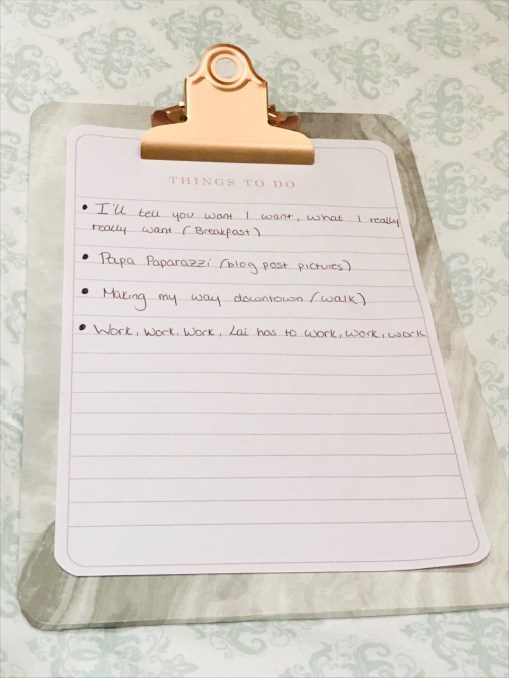 THINGS TO DO
• I'll tell you want I want, what I really
really want (Breakfast)
• Papa Paparazzi (blog post pictures)
• Making my way downtown (walk)
• Work, Work, Work, Lai has to work, work, work